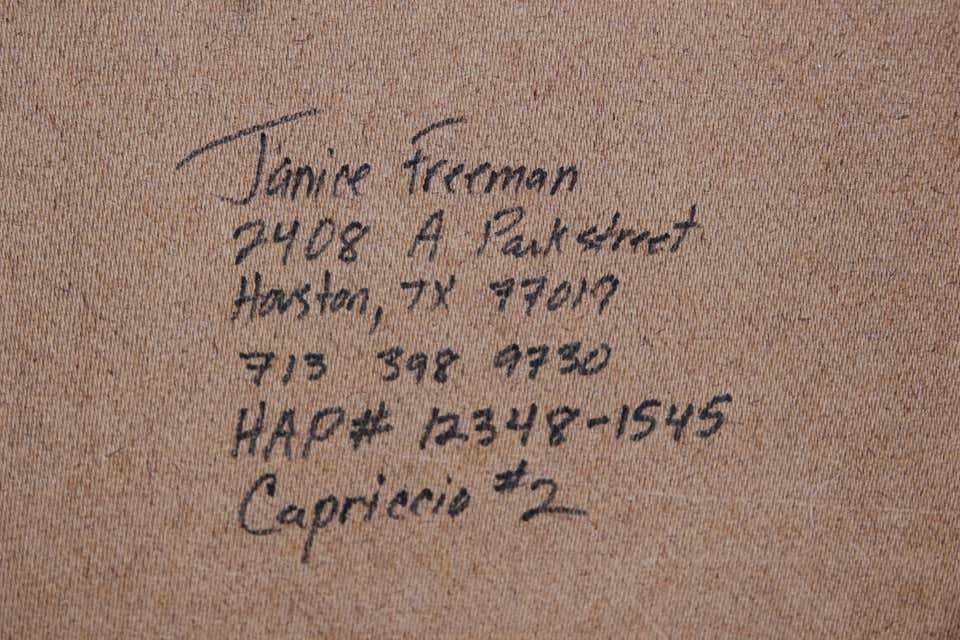 Janice Freeman
2408 A Park street
Houston, TX 77019
713 398 9730
HAP# 12348-1545
Capriccio #2